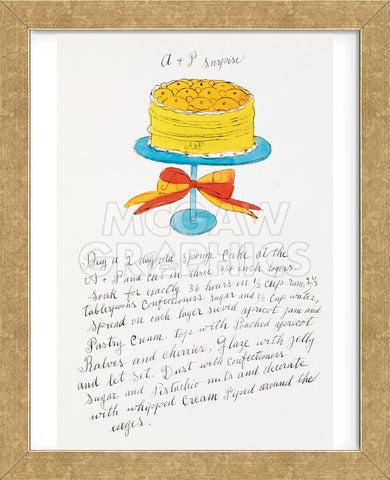 A + P Surprise
A&P
McGAW
GRAPHICS
Buy a 2 day old sponge cake at the
A + P and cut in three 3/4 inch layers.
Soak for exactly 36 hours in 1/2 cup rum, 2 1/2
tablespoons Confectioners sugar and 1/2 Cup water,
Spread on each layer sieved apricot jam and
Pastry Cream. top with Poached apricot
Halves and cherries. Glaze with jelly
and let set. Dust with Confectioners
Sugar and Pistachio nuts and decorate
with whipped Cream Piped around the
edges.